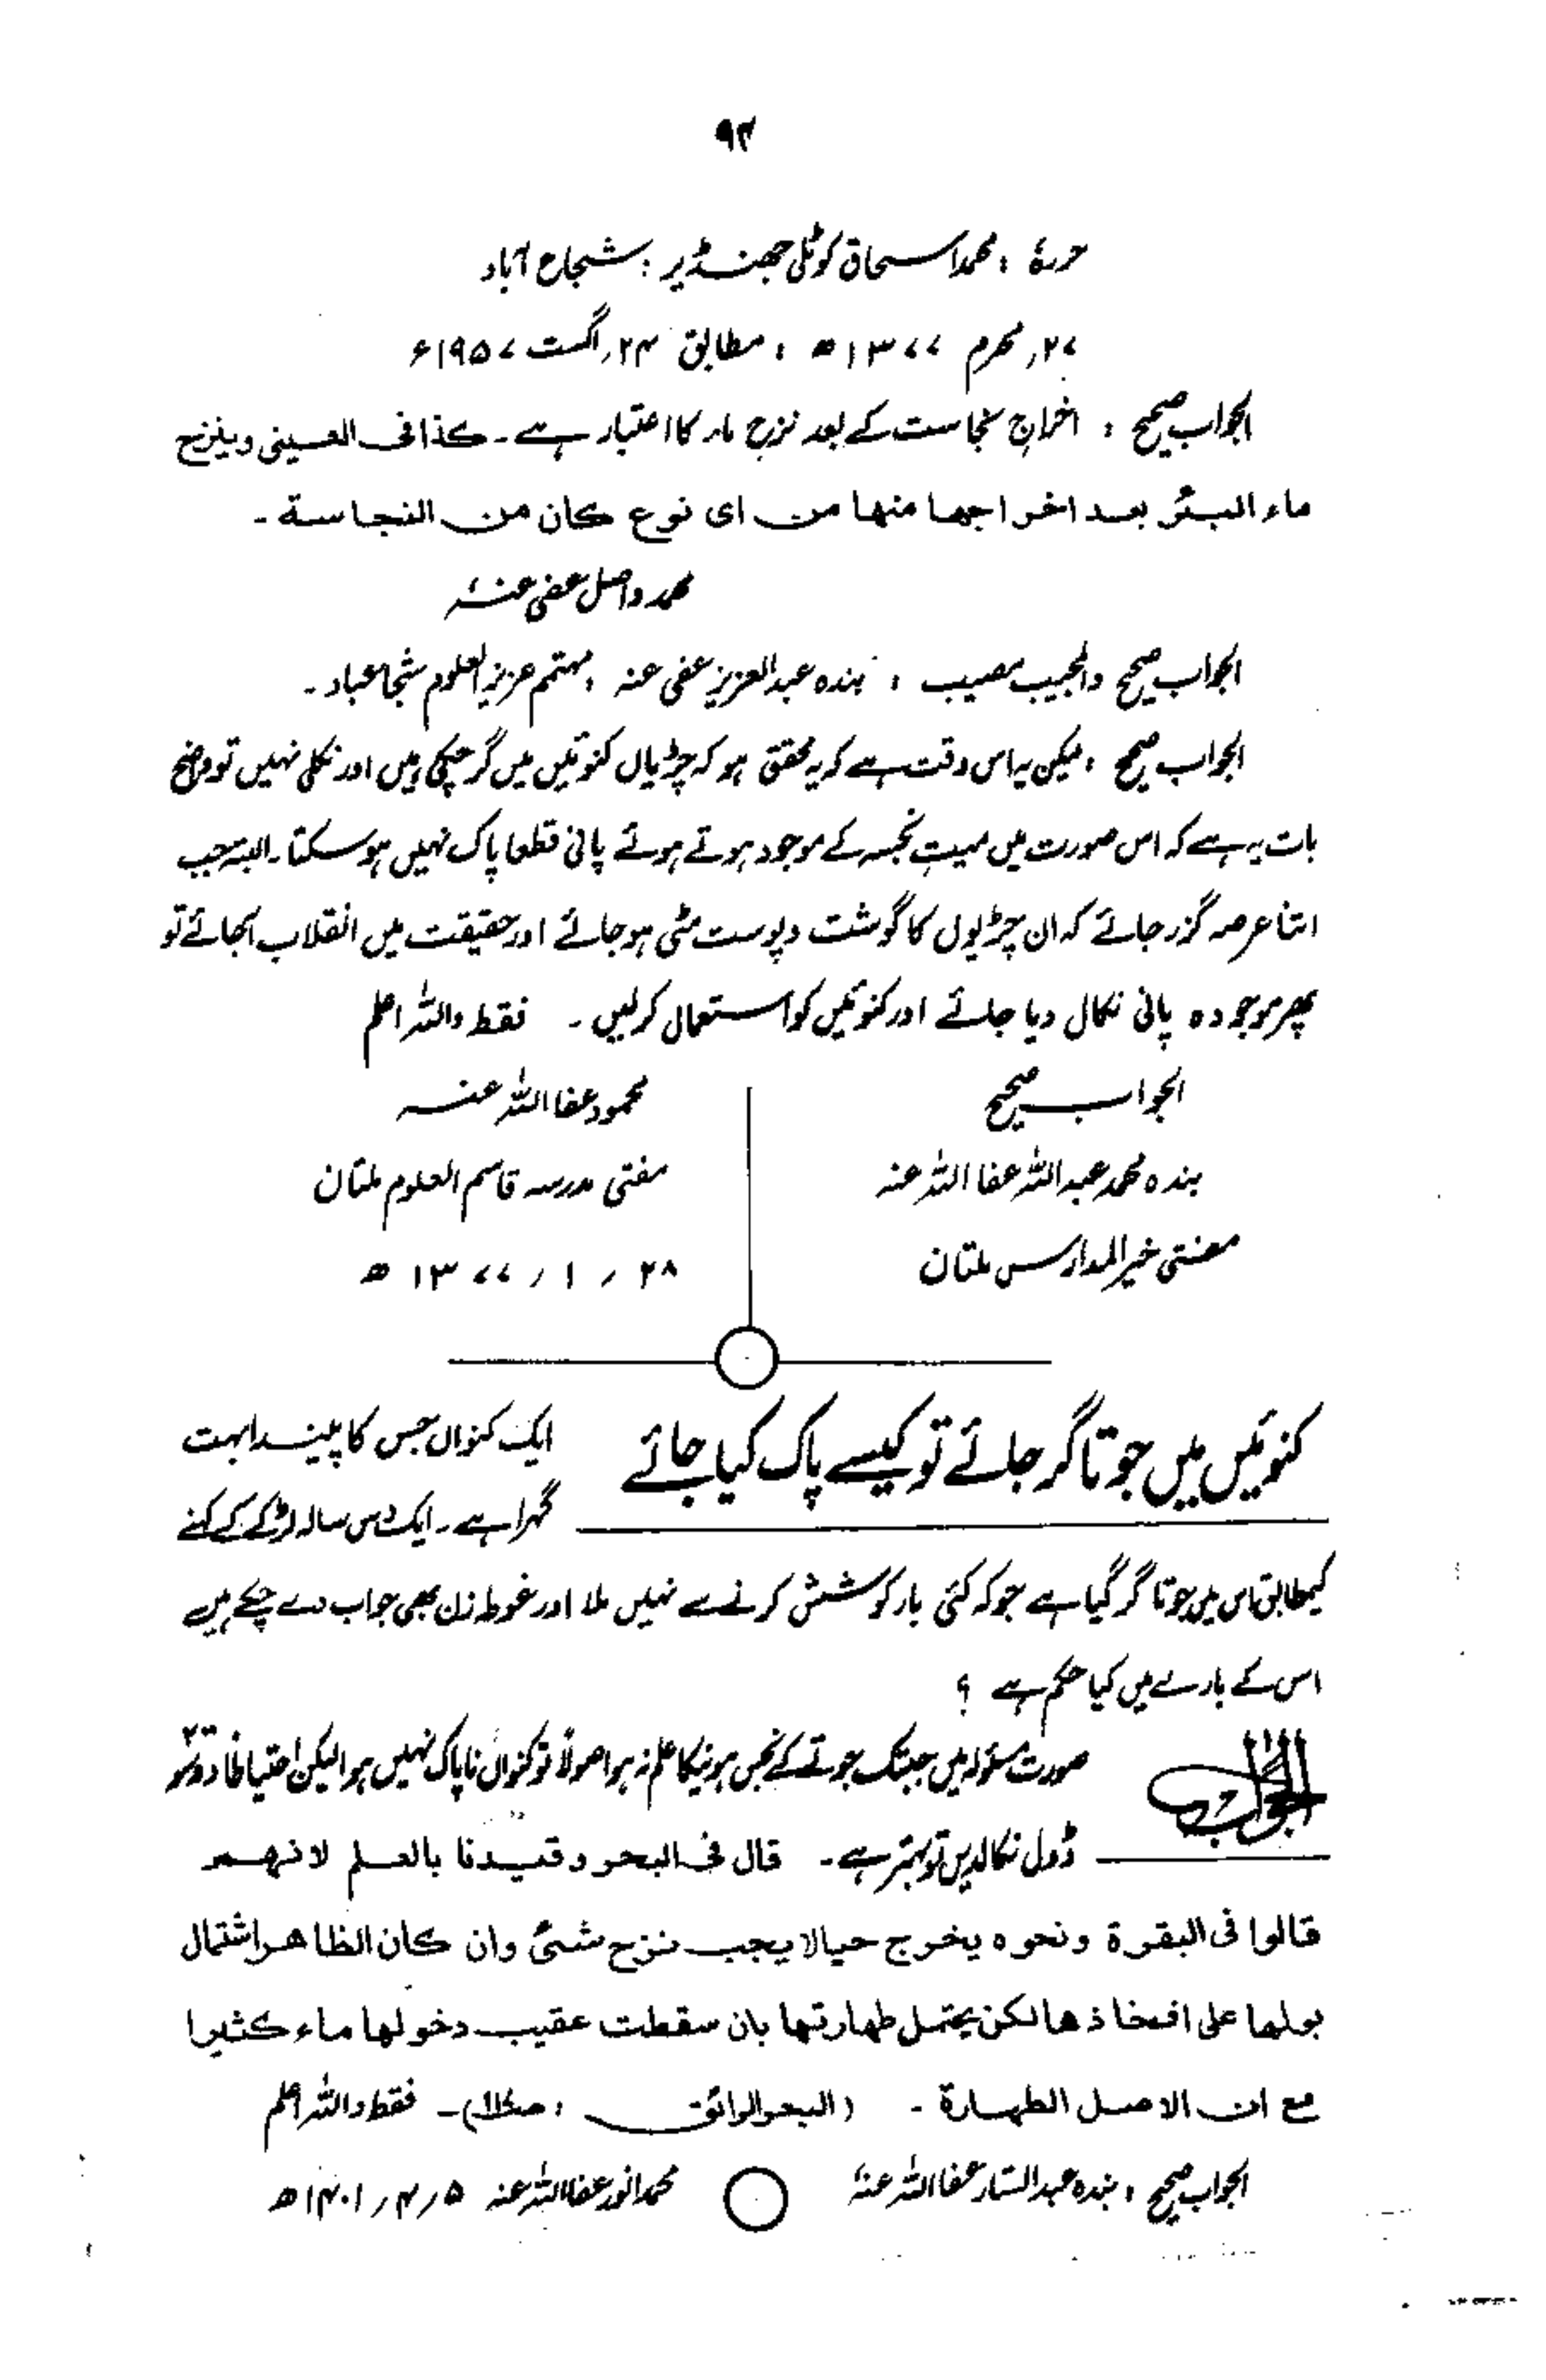 ۹۲
حررہٗ : محمد اسحاق کوٹلی جھنڈیر : شجاع آباد
۲۷ ر محرم ۱۳۷۷ ھ : مطابق ۲۴ ر اگست ۱۹۵۷ء
الجواب صحیح : اخراج نجاست کے بعد نزح ماء کا اعتبار ہے ۔ کذا فی العینی وینزح
ماء البئر بعد اخراجها منها من ای نوع کان من النجاسة ۔
محمد واصل عفی عنہ
الجواب صحیح والمجیب مصیب : بندہ عبدالعزیز عفی عنہ ، مہتمم عزیز العلوم شجاعباد ۔
الجواب صحیح : لیکن یہ اس وقت ہے کہ یہ محقق ہو کہ چڑیاں کنوئیں میں گر چکی ہیں اور نکلی نہیں تو واضح
بات یہ ہے کہ اس صورت میں میت نجسہ کے موجود ہوتے ہوئے پانی قطعا پاک نہیں ہو سکتا ۔ البتہ جب
اتنا عرصہ گزر جائے کہ ان چڑیوں کا گوشت و پوست مٹی ہو جائے اور حقیقت میں انقلاب آجائے تو
پھر موجودہ پانی نکال دیا جائے اور کنوئیں کو استعمال کرلیں ۔ فقط واللہ اعلم
الجواب صحیح
بندہ محمد عبداللہ عفا اللہ عنہ
مفتی خیر المدارس ملتان
محمود عفا اللہ عنہ
مفتی مدرسہ قاسم العلوم ملتان
۲۸ ر ۱ ر ۱۳۷۷ ھ
کنوئیں میں جوتا گر جائے تو کیسے پاک کیا جائے
ایک کنواں جس کا پیندا بہت
گہرا ہے ۔ ایک دس سالہ لڑکے کے کہنے
کیمطابق اس میں جوتا گر گیا ہے جو کہ کئی بار کوشش کرنے سے نہیں ملا اور غوطہ زن بھی جواب دے چکے ہیں
اس کے بارے میں کیا حکم ہے ؟
الجواب
صورت مسؤلہ میں جبتک جوتے کے نجس ہونیکا علم نہ ہو اصولاً تو کنواں ناپاک نہیں ہوا لیکن احتیاطا دو تین سو
ڈول نکالدیں تو بہتر ہے ۔ قال فی البحر وقیدنا بالعلم لانهم
قالوا فی البقرة ونحوه یخرج حیا لا یجب نزح شیٔ وان کان الظاهر اشتمال
بولها علی افخاذها لکن یحتمل طهارتها بان سقطت عقیب دخولها ماء کثیرا
مع ان الاصل الطهارة ۔ (البحر الرائق : ) ۔ فقط واللہ اعلم
الجواب صحیح : بندہ عبدالستار عفا اللہ عنہٗ
محمد انور عفا اللہ عنہ ۵ ر ۴ ر ۱۴۰۱ ھ